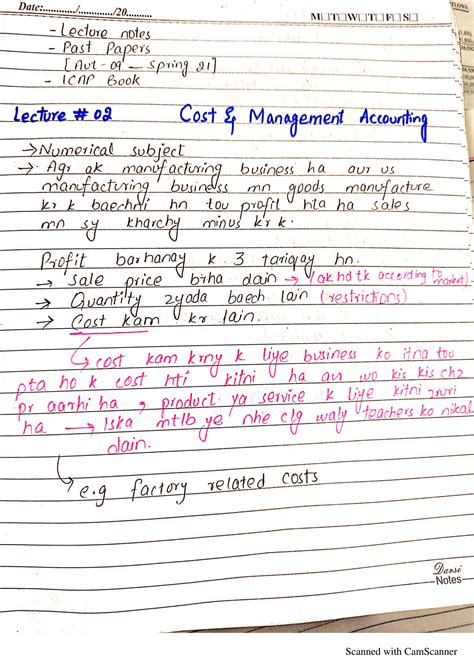 Date:............/............/20..........
M T W T F S
- Lecture notes
- Past Papers
[Aut-09 - Spring 21]
- ICAP Book
Lecture # 02 Cost & Management Accounting
→ Numerical subject
→ Agr ak manufacturing business ha aur us
manufacturing business mn goods manufacture
kr k baechni hn tou profit hta ha sales
mn sy kharchy minus kr k.
Profit barhanay k 3 tariqay hn.
→ Sale price brha dain → (ak hd tk according to market).
→ Quantity zyada baech lain (restrictions)
→ Cost kam kr lain.
→ cost kam krny k liye business ko itna tou
pta ho k cost hti kitni ha aur wo kis kis chz
pr aarhi ha, product ya service k liye kitni zruri
ha → Iska mtlb ye nhe clg waly teachers ko nikal
dain.
→ e.g factory related costs
Darsi
Notes
Scanned with CamScanner